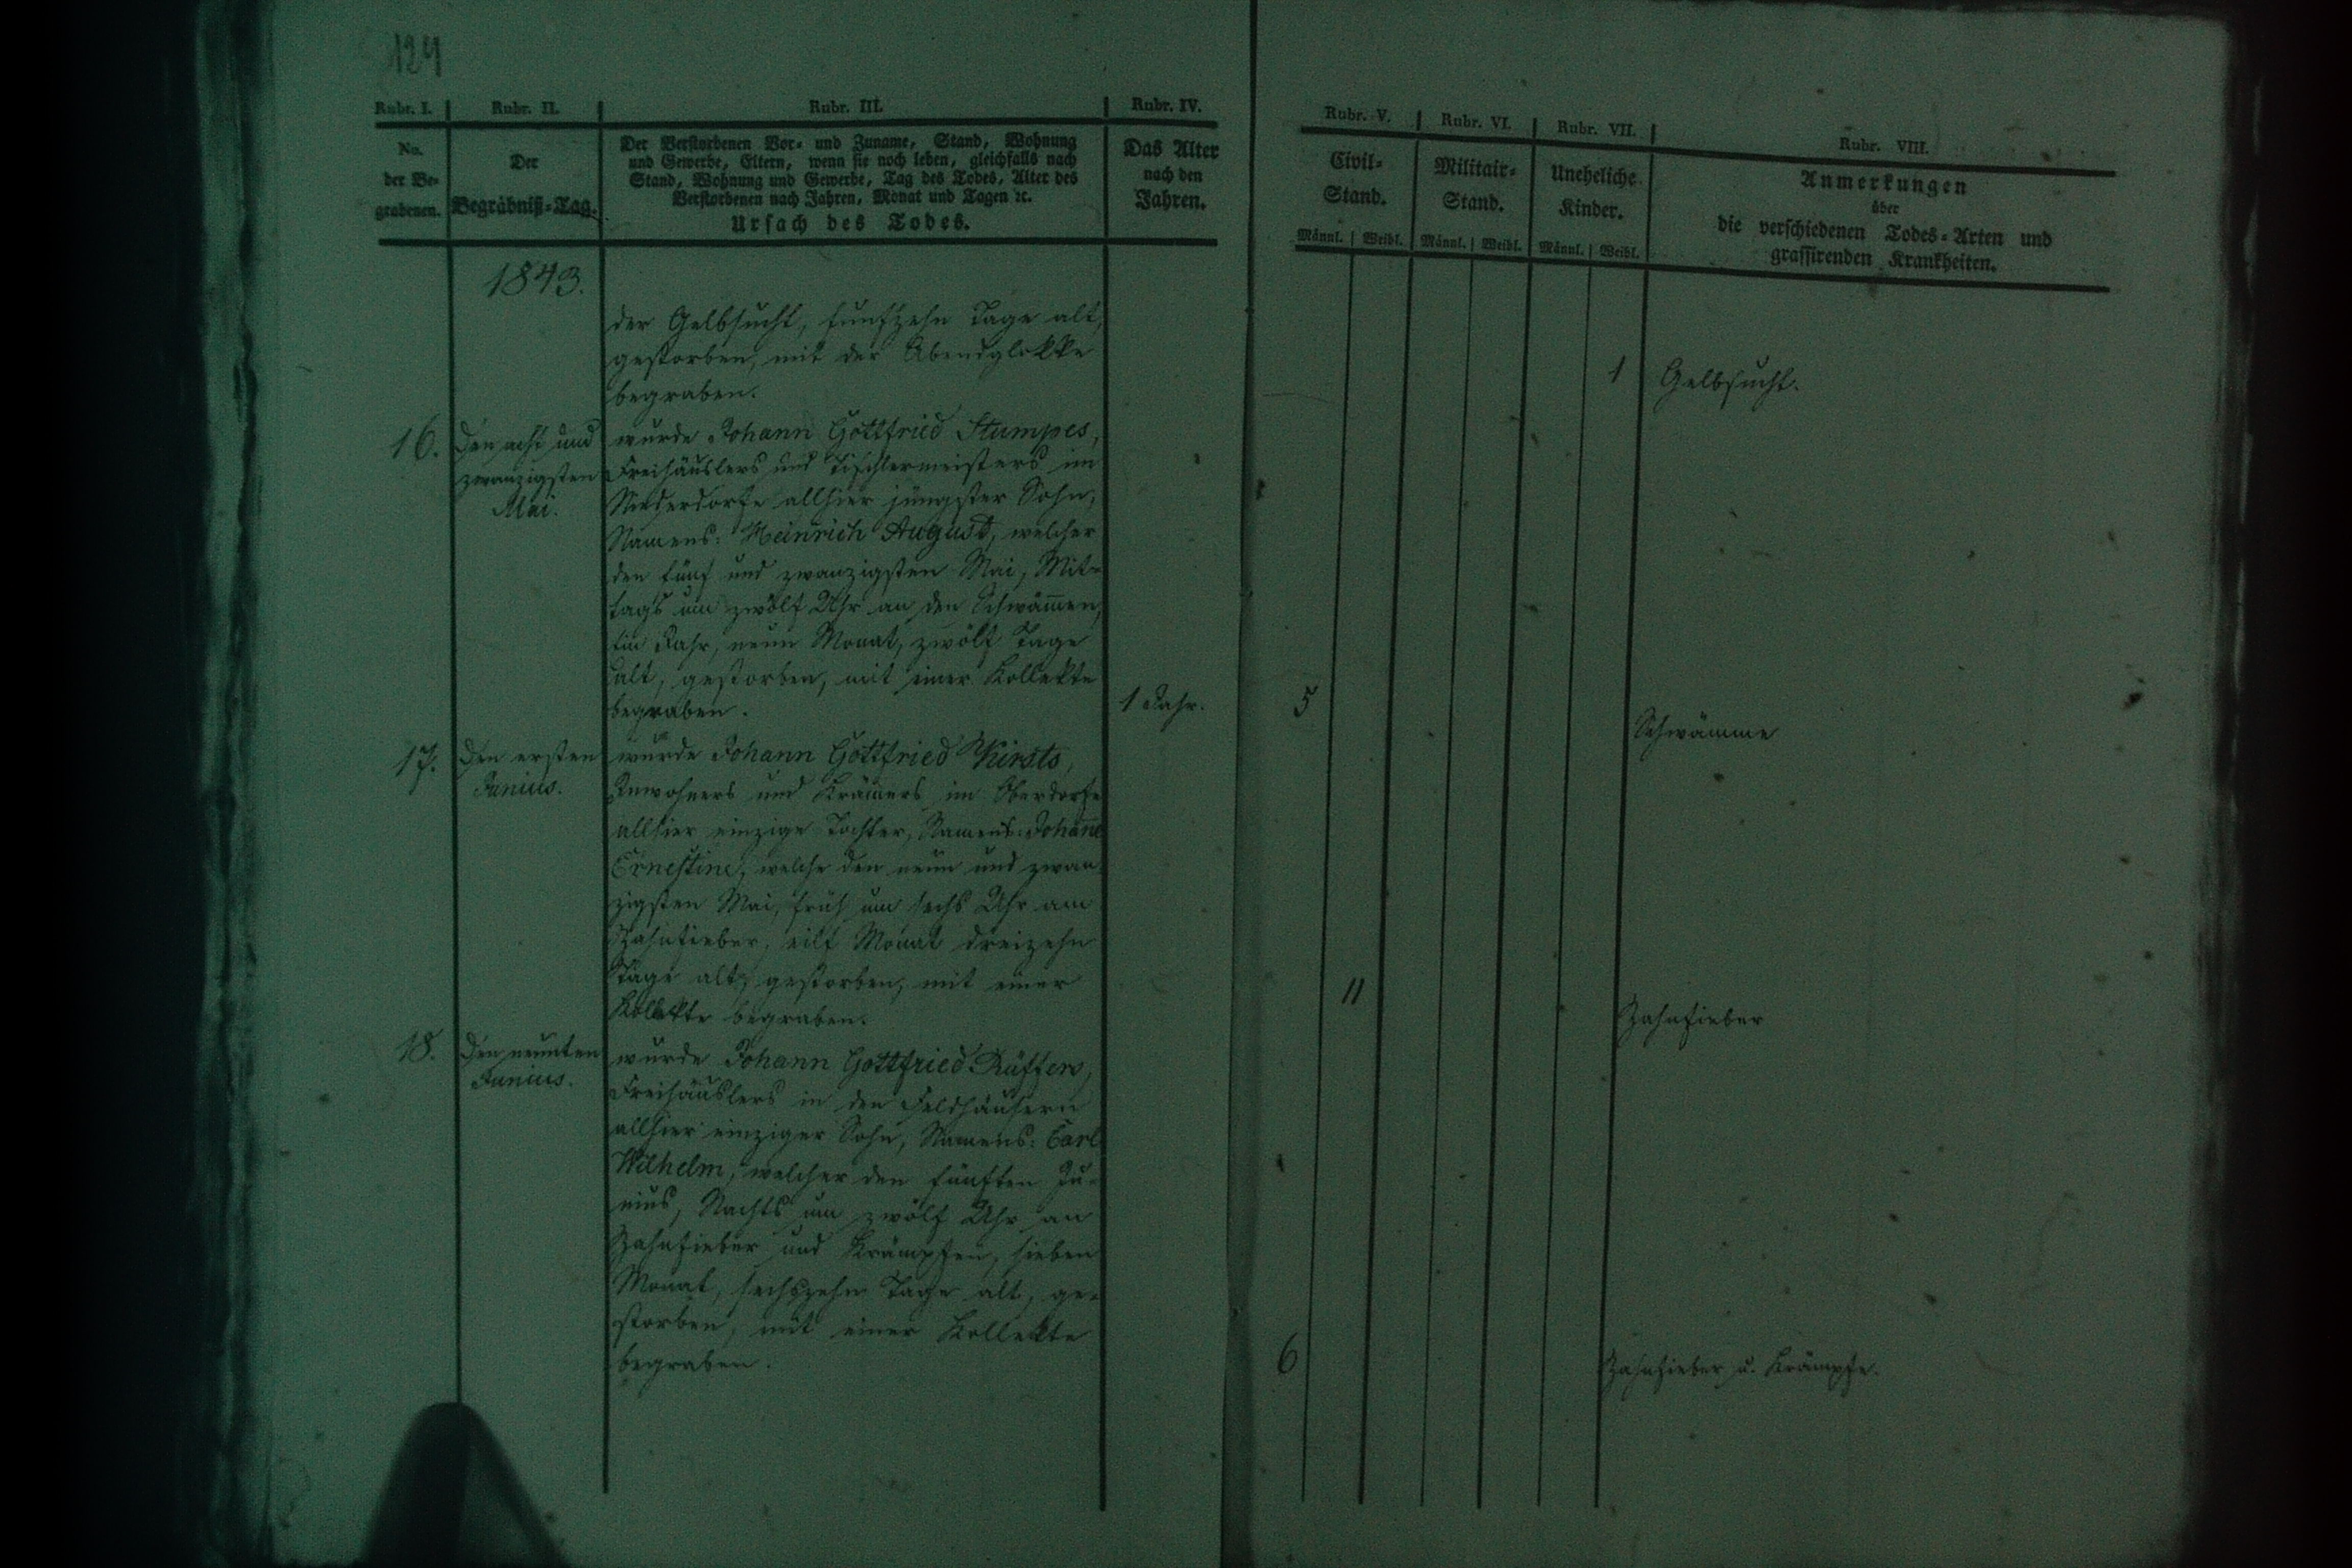 124
Rubr. I. Rubr. II. Rubr. III. Rubr. IV.
No. der Be- grabenen.
Der Begräbniß-Tag.
Der Verstorbenen Vor- und Zuname, Stand, Wohnung
und Gewerbe, Eltern, wenn sie noch leben, gleichfalls nach
Stand, Wohnung und Gewerbe, Tag des Todes, Alter des
Verstorbenen nach Jahren, Monat und Tagen ꝛc.
Ursach des Todes.
Das Alter
nach den
Jahren.
1843.
der Gelbsucht, funfzehn Tage alt,
gestorben, mit der Abendglokke
begraben.
16. Den acht und
zwanzigsten
Mai.
wurde Johann Gottfried Stumpes,
Freihäuslers und Tischlermeisters im
Niederdorfe allhier jüngster Sohn,
Namens: Heinrich August, welcher
den fünf und zwanzigsten Mai, Mit-
tags um zwölf Uhr an den Schwäm̅en,
ein Jahr, neun Monat, zwölf Tage
alt, gestorben, mit einer Kollekte
begraben.
1 Jahr.
17. Den ersten
Junius.
wurde Johann Gottfried Kirsts,
Inwohners und Kräm̅ers im Oberdorfe
allhier einzige Tochter, Namens: Johan̅e
Ernestine, welche den neun und zwan-
zigsten Mai, früh um sechs Uhr am
Zahnfieber, eilf Monat dreizehn
Tage alt, gestorben, mit einer
Kollekte begraben.
18. Den neunten
Junius.
wurde Johann Gottfried Rüffers,
Freihäuslers in den Feldhäusern
allhier einziger Sohn, Namens: Carl
Wilhelm, welcher den fünften Ju-
nius, Nachts um zwölf Uhr an
Zahnfieber und Krämpfen, sieben
Monat, sechszehn Tage alt, ge-
storben, mit einer Kollekte
begraben.
Rubr. V. Rubr. VI. Rubr. VII. Rubr. VIII.
Civil-
Stand.
Männl. Weibl.
Militair-
Stand.
Männl. Weibl.
Uneheliche
Kinder.
Männl. Weibl.
Anmerkungen
über
die verschiedenen Todes-Arten und
grassirenden Krankheiten.
1 Gelbsucht.
5 Schwämme
11 Zahnfieber
6 Zahnfieber u. Krämpfe.